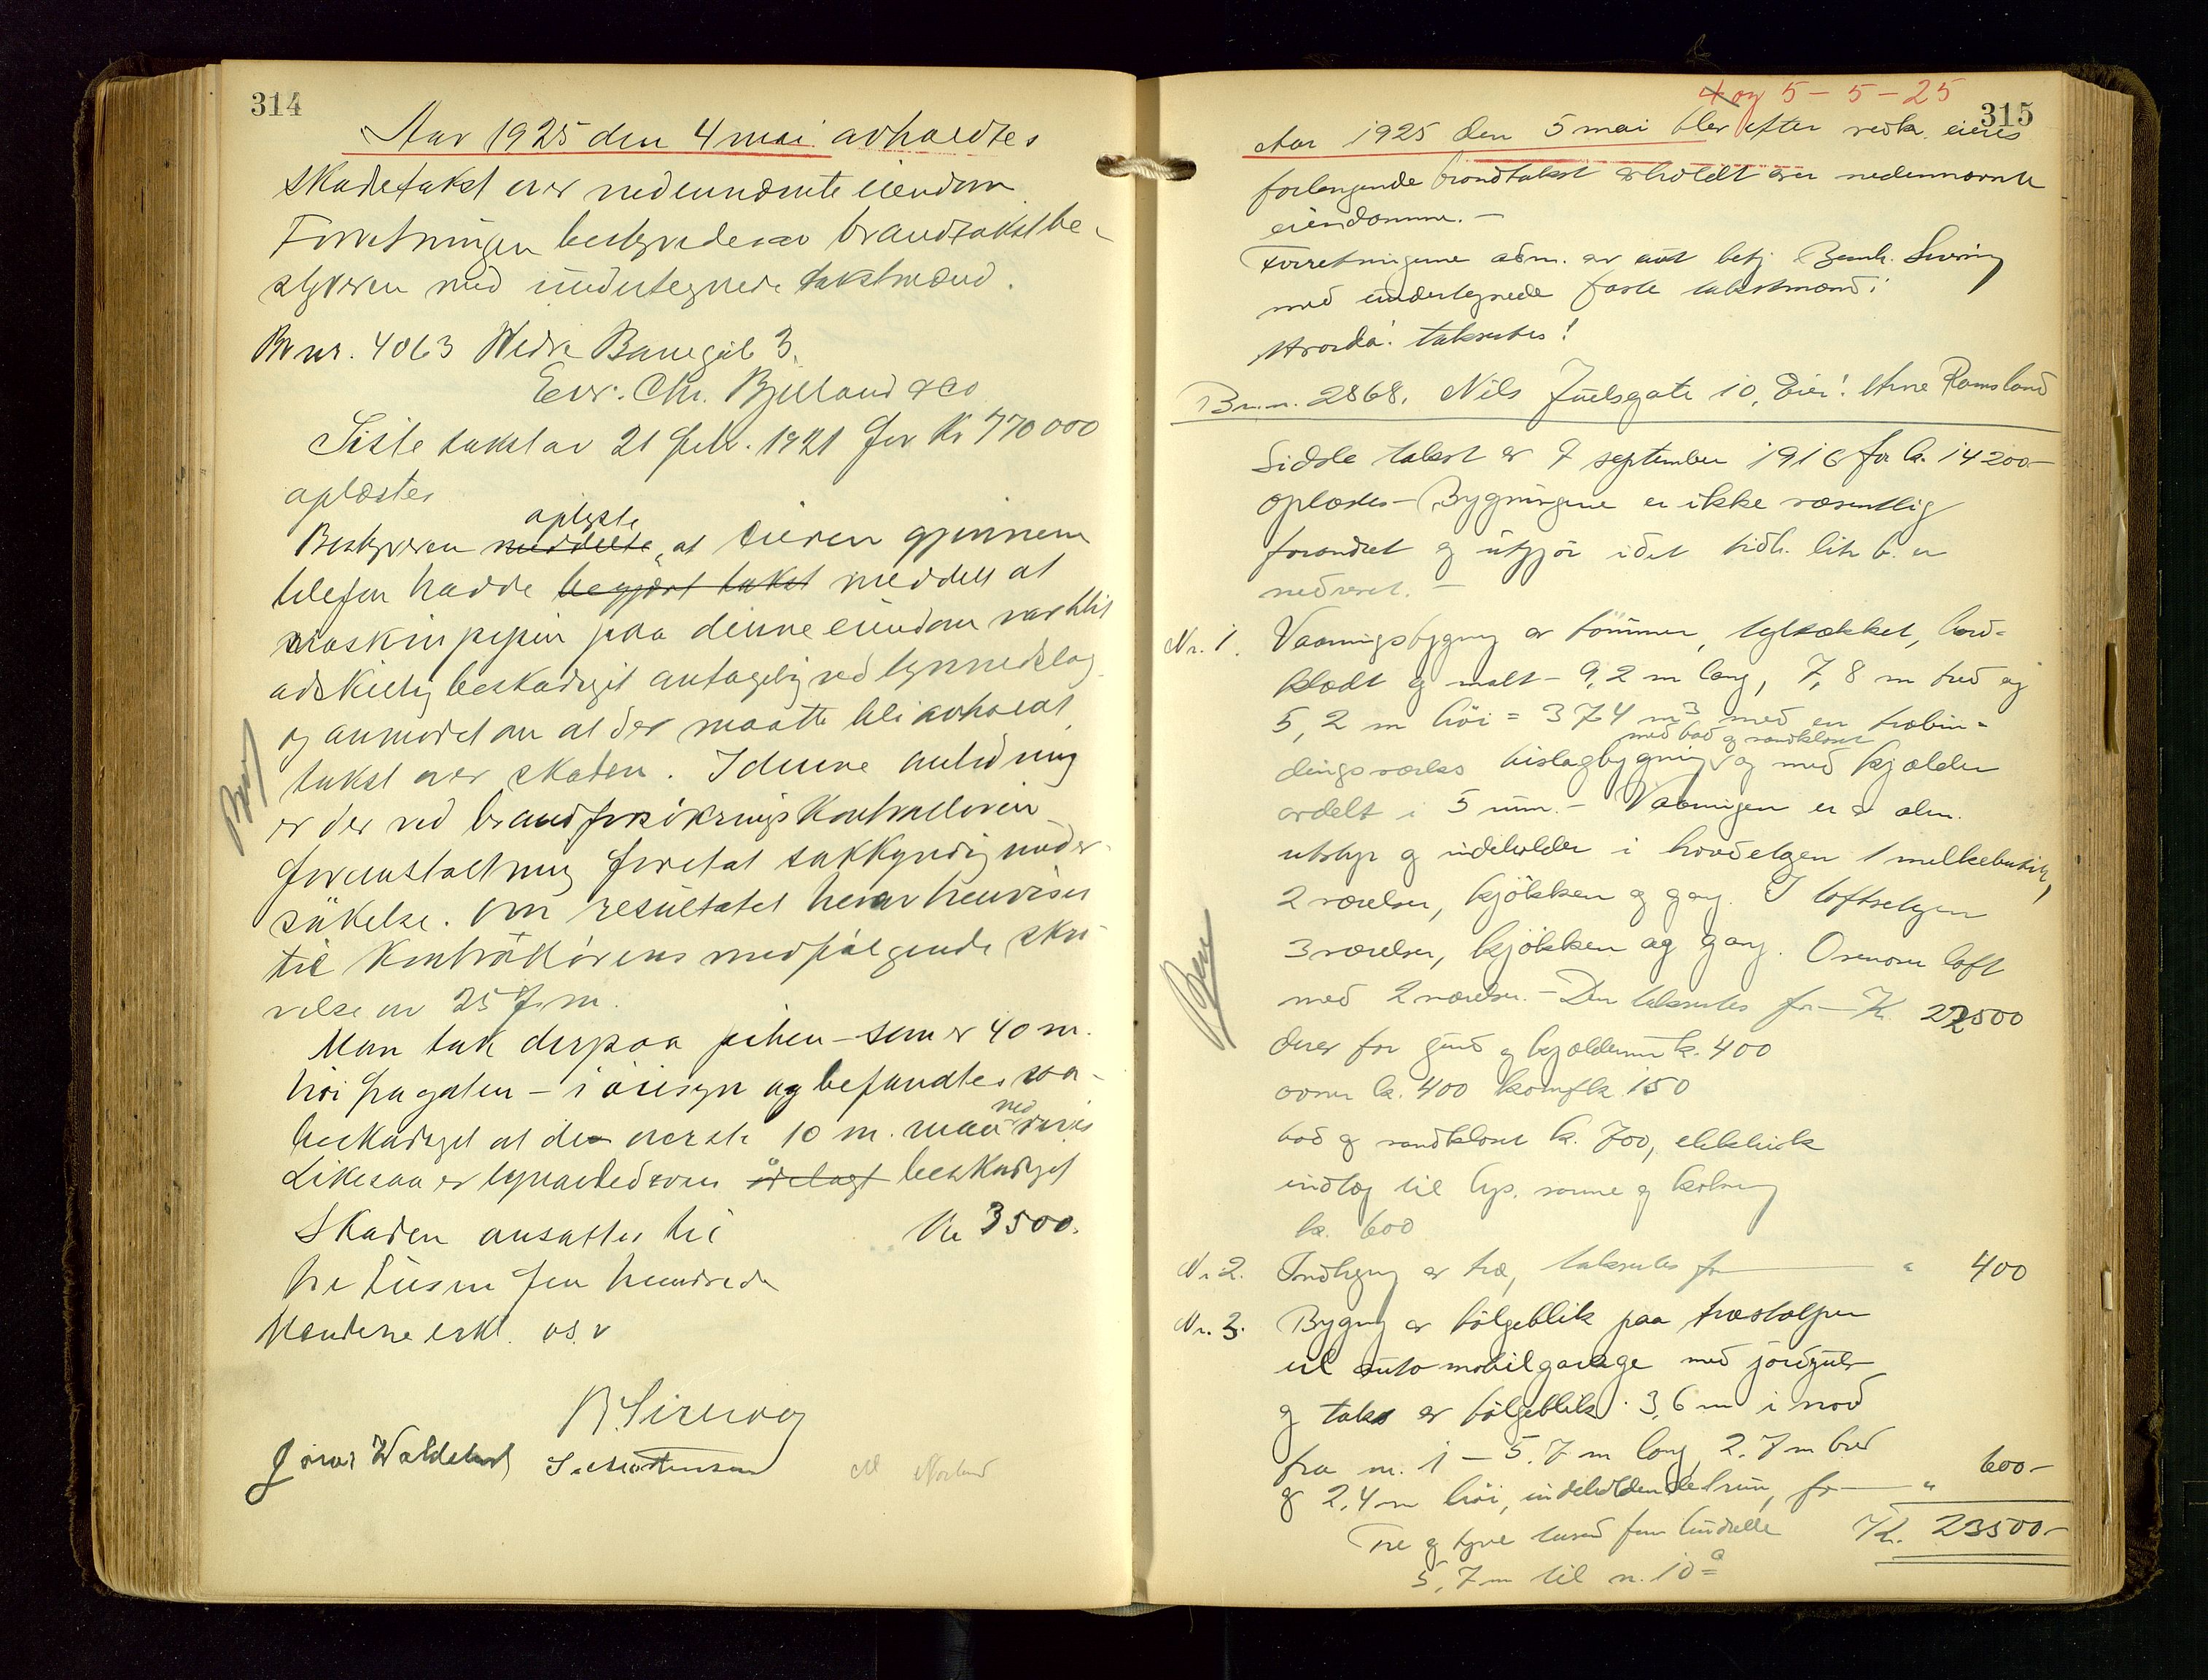 314
Aar 1925 den 4 mai avholdtes
Skadetakst over nedennævnte eiendom
Forretningen bestyredes av brandtakstbe-
styreren med undertegnede takstmænd.
Br nr. 4063 Nedre Banegt 3.
Eier: Chr. Bjelland & Co
Siste takst av 21 febr. 1921 for Kr 770 000
oplæstes
oplyste
Bestyreren meddelte, at eieren gjennem
telefon hadde begjært takst meddelt at
maskinpipen paa denne eiendom var blit
adskillig beskadiget antagelig ved lynnedslag
og anmodet om at der maatte bli avholdt
takst over skaden. I denne anledning
er der ved brandforsikringskontrollørens
foranstaltning foretat sakkyndig under-
søkelse. Om resultatet herav henvises
til Kontrollørens medfølgende skri-
velse av 25 f. m.
Man tok derpaa pipen – som er 40 m.
høi fra gaten – i øiesyn og befandtes saa
beskadiget at de øverste 10 m. maa
ned
rives
Likesaa er lynavlederen ødelagt beskadiget
Skaden ansattes til Kr 3500.
tre tusen fem hundrede
Mændene erkl. os. v
B. Sirevaag
S. Mortensen
315
4 og 5 – 5 – 25
Aar 1925 den 5 mai blev efter vedk. eieres
forlangende brandtakst avholdt over nedennævnte
eiendomme. –
Forretningene adm. av aut betj Bernh.
med undertegnede faste takstmænd:
Hvorda: taksertes!
Br.n. 2868. Nils Juelsgate 10, Eier: Arne Ramsland
Sidste takst av 9 september 1916 for k. 14200–
oplæstes – Bygningene er ikke væsentlig
forandret og utgjør idet tidl. litr b. er
nedrevet. –
Nr. 1. Vaaningsbygning av tømmer, teltækket, bord-
klædt og malt – 9,2 m lang, 7,8 m bred og
5,2 m høi = 374 m3 med en trebin-
med bad og vandkloset
dingsverks bislagbygning og med kjælder
avdelt i 5 rum. – Vaaningen er av alm.
utstyr og indeholder i hovedetagen 1 melkebutik,
2 værelser, kjøkken og gang. I loftsetagen
3 værelser, kjøkken og gang. Ovenover loft
med 2 værelser. – Den taksertes for – Kr. 22500
derav for grund og kjældermur k. 400
ovner k. 400 komfk. 150
bad og vandkloset k. 700, elektrisk
indlæg til lys, varme og kokning
k. 600
Nr. 2. Indhegning av træ, taksertes for " 400
Nr. 3. Bygning av bølgeblik paa træstolper
til automobilgarage med jordgulv
og taks av bølgeblik. 3,6 m i nord
fra nr. 1 – 5,7 m lang, 2,7 m bred
og 2,4 m høi, indeholdende 1 rum, for – " 600–
Tre og tyve tusend fem hundrede Kr. 23500–
5,7 m til n. 10a